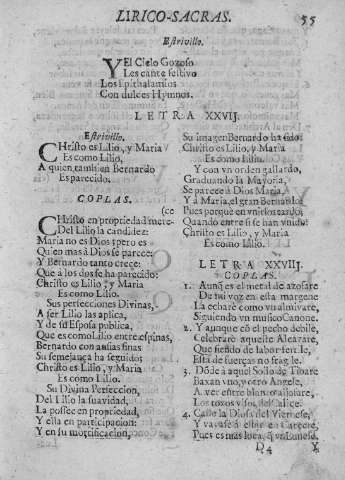 LIRICO-SACRAS. 55
Estrivillo.
Y El Cielo Gozoso
Les cante festivo
Los Epithalamios
Con dulces Hymnos.
LETRA XXVIJ.
Estrivillo.
CHristo es Lilio, y Maria
Es como Lilio,
A quien tambien Bernardo
Es parecido.
COPLAS.
(ce
CHristo en propriedad mere-
Del Lilio la candidez:
Maria no es Dios; pero es
Quien mas à Dios se parece:
Y Bernardo tanto crece:
Que a los dos se ha parecido:
Christo es Lilio, y Maria
Es como Lilio.
Sus perfecciones Divinas,
A ser Lilio las aplica,
Y de su Esposa publica,
Que es como Lilio entre espinas,
Bernardo con ansias finas
Su semejança ha seguido;
Christo es Lilio, y Maria
Es como Lilio.
Su Divina Perfeccion,
Del Lilio la suavidad,
La possee en propriedad,
Y ella en participacion:
Y en su mortificacion,
Su imagen Bernardo ha sido:
Christo es Lilio, y Maria
Es como Lilio.
Y con un orden gallardo,
Graduando la Mayoria,
Se parece à Dios Maria,
Y à Maria, el gran Bernardo:
Pues porque en unirlos tardo,
Quando entre si se han unido:
Christo es Lilio, y Maria
Es como Lilio.
LETRA XXVIIJ.
COPLAS.
1. Aunq̃ es el metal de azofare
De mi voz en esta margene
La echarè como
Siguiendo un musico Canone.
2. Y aunque cõ el pecho debile,
Celebrarè aqueste Alcazare,
Que siendo de labor
Està de fuerças no fragile.
3. Dõde à aquel Solio de Tibare
Baxan uno, y otro Angele,
A ver entre
Los
4. Calle la Diosa del Viernese,
Y
Pues es mas loca, q̃ un Lunese,
D4 Y